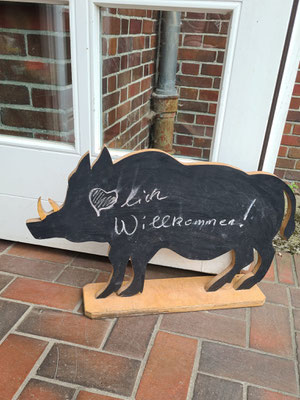 ♥lich
Willkommen!